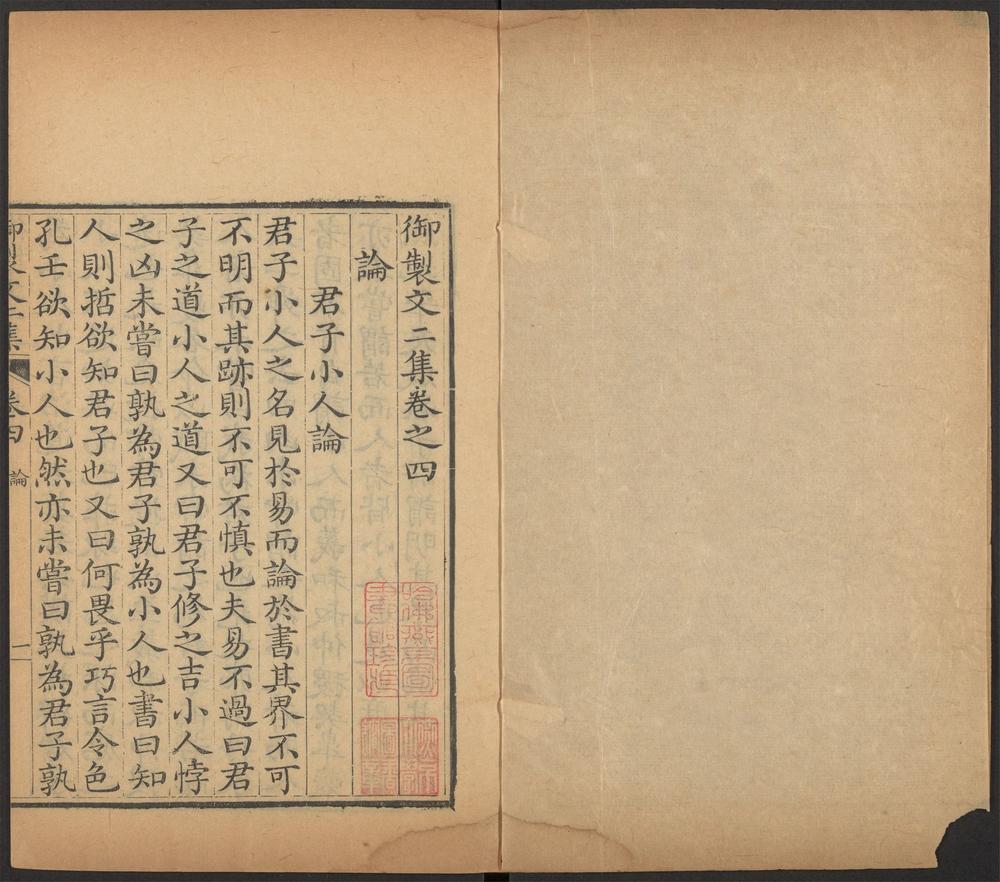 御製文二集卷之四
論
君子小人論
君子小人之名見於易而論於書其界不可
不明而其跡則不可不慎也夫易不過曰君
子之道小人之道又曰君子修之吉小人悖
之凶未嘗曰孰為君子孰為小人也書曰知
人則哲欲知君子也又曰何畏乎巧言令色
孔壬欲知小人也然亦未嘗曰孰為君子孰
御製文二集
卷四
論
一